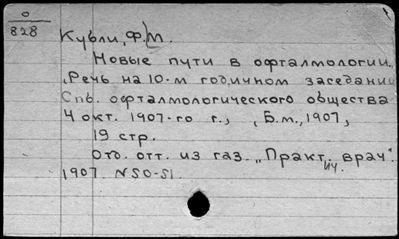 0
828
Кубли, Ф. М.
Новые пути в офталмологии.
Речь на 10-м годичном заседании
Спб. офталмологического общества
4 окт. 1907-го г., [Б.м., 1907,
19 стр.
Отд. отт. из газ. „Практич. врач".
1907. N 50-51.